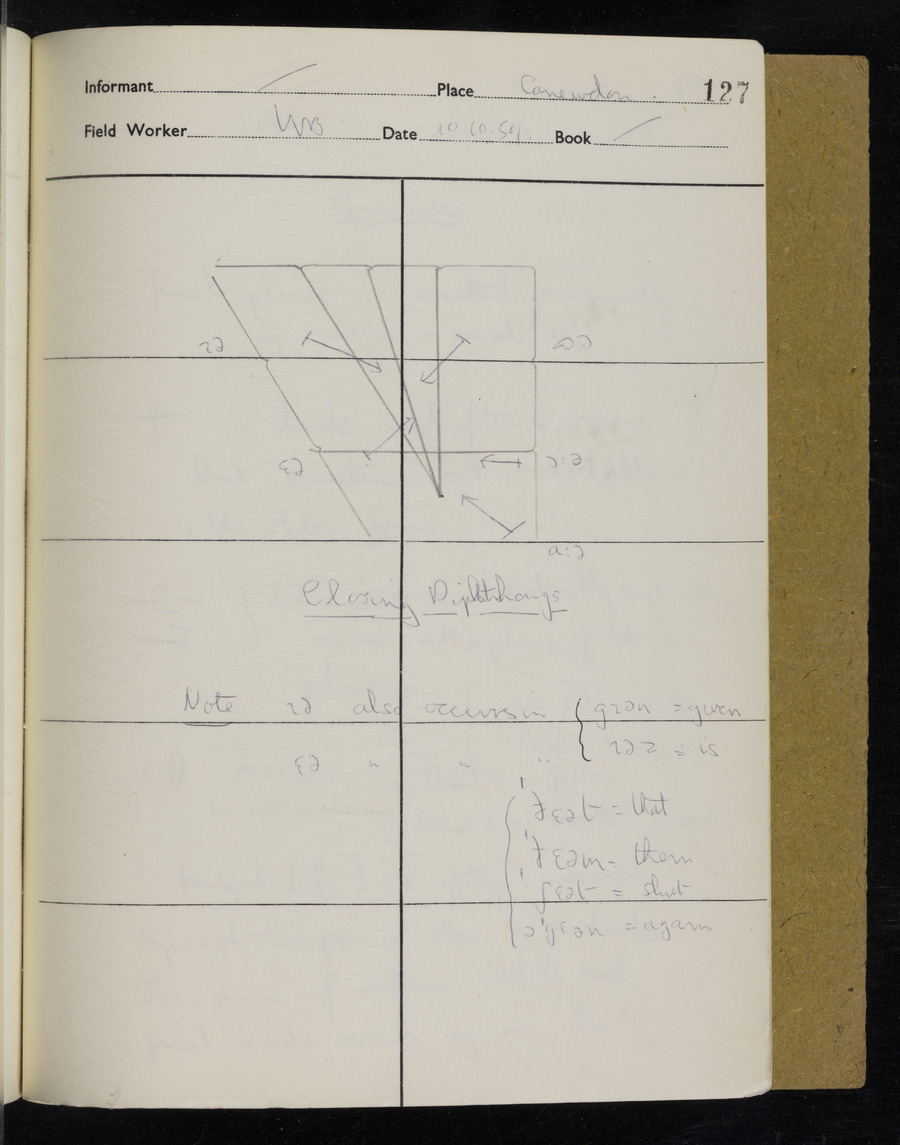 Informant / Place Canewdon. 127
Field Worker WB Date 10.10.59. Book /
ɩə ɷə
ɛə ɔ:ə
a:ə
Closing Diphthongs
Note ɩə also occurs in { gɩən = given
ɩəz = is
ɛə " " "
ɛət = that
ɛəm = them
ʃɛət = shut
ə'gɛən = again